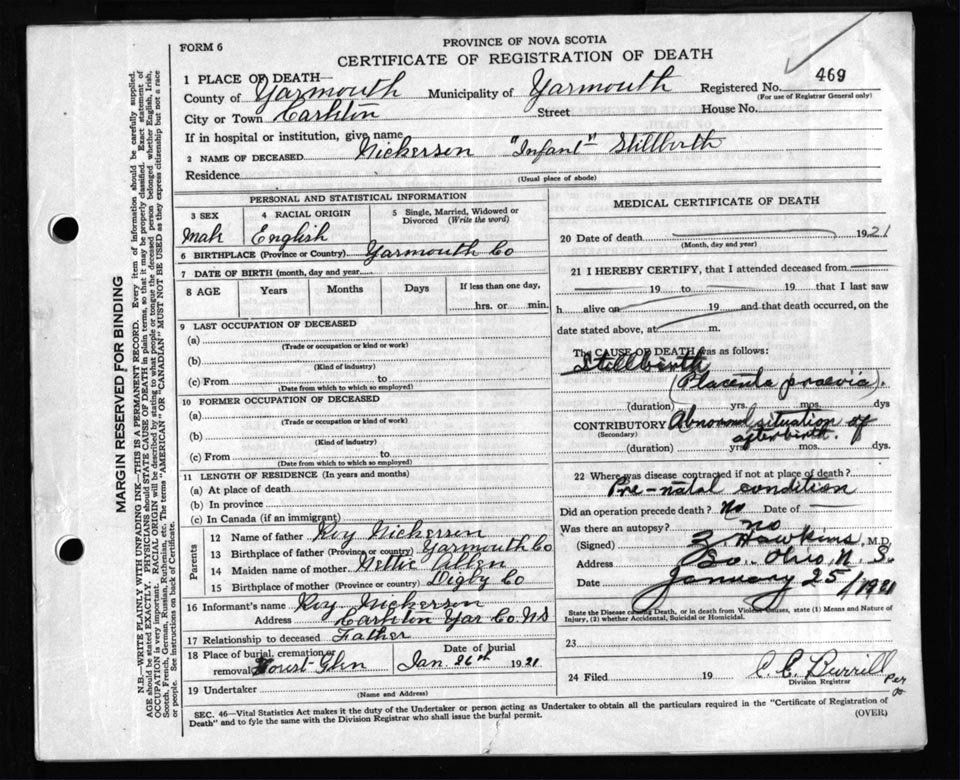 FORM 6
PROVINCE OF NOVA SCOTIA
CERTIFICATE OF REGISTRATION OF DEATH
469
1 PLACE OF DEATH—
County of Yarmouth Municipality of Yarmouth Registered No.
(For use of Registrar General only)
City or Town Carleton Street House No.
If in hospital or institution, give name
2 NAME OF DECEASED Nickerson "Infant" Stillbirth
Residence
(Usual place of abode)
PERSONAL AND STATISTICAL INFORMATION
3 SEX 4 RACIAL ORIGIN 5 Single, Married, Widowed or Divorced (Write the word)
Male English
6 BIRTHPLACE (Province or Country) Yarmouth Co
7 DATE OF BIRTH (month, day and year)
8 AGE Years Months Days If less than one day,
hrs. or min.
9 LAST OCCUPATION OF DECEASED
(a)
(Trade or occupation or kind or work)
(b)
(Kind of industry)
(c) From to
(Date from which to which so employed)
10 FORMER OCCUPATION OF DECEASED
(a)
(Trade or occupation or kind of work)
(b)
(Kind of industry)
(c) From to
(Date from which to which so employed)
11 LENGTH OF RESIDENCE (In years and months)
(a) At place of death
(b) In province
(c) In Canada (if an immigrant)
Parents
12 Name of father Roy Nickerson
13 Birthplace of father (Province or country) Yarmouth Co
14 Maiden name of mother Nettie Allen
15 Birthplace of mother (Province or country) Digby Co
16 Informant's name Roy Nickerson
Address Carleton Yar Co NS
17 Relationship to deceased Father
18 Place of burial, cremation or removal Forest Glen Date of burial Jan. 26th 1921
19 Undertaker
(Name and Address)
MEDICAL CERTIFICATE OF DEATH
20 Date of death 1921
(Month, day and year)
21 I HEREBY CERTIFY, that I attended deceased from
19 to 19 that I last saw
h alive on 19 and that death occurred, on
date stated above, at m.
The CAUSE OF DEATH was as follows:
Stillbirth
(Placenta praevia).
(duration) yrs. mos. dys
CONTRIBUTORY Abnormal situation of
(Secondary) afterbirth.
(duration) yrs. mos. dys.
22 Where was disease contracted if not at place of death?
Pre-natal condition
Did an operation precede death? No Date of
Was there an autopsy? no
(Signed) Z Hawkins, M.D.
Address So. Ohio, N. S.
Date January 25/1921
State the Disease causing Death, or in death from Violent Causes, state (1) Means and Nature of
Injury, (2) whether Accidental, Suicidal or Homicidal.
23
24 Filed 19 C. C. Burrill
Division Registrar
Per
SEC. 46—Vital Statistics Act makes it the duty of the Undertaker or person acting as Undertaker to obtain all the particulars required in the "Certificate of Registration of
Death" and to fyle the same with the Division Registrar who shall issue the burial permit.
(OVER)
MARGIN RESERVED FOR BINDING
N.B.—WRITE PLAINLY WITH UNFADING INK—THIS IS A PERMANENT RECORD. Every item of information should be carefully supplied.
AGE should be stated EXACTLY. PHYSICIANS should STATE CAUSE OF DEATH in plain terms, so that it may be properly classified. Exact statement of
OCCUPATION is very important. RACIAL ORIGIN will be described by stating to what people or tongue the deceased person belonged whether English, Irish,
Scotch, French, German, Russian, Ruthenian, etc. The terms "AMERICAN" OR "CANADIAN" MUST NOT BE USED as they express citizenship but not a race
or people. See instructions on back of Certificate.